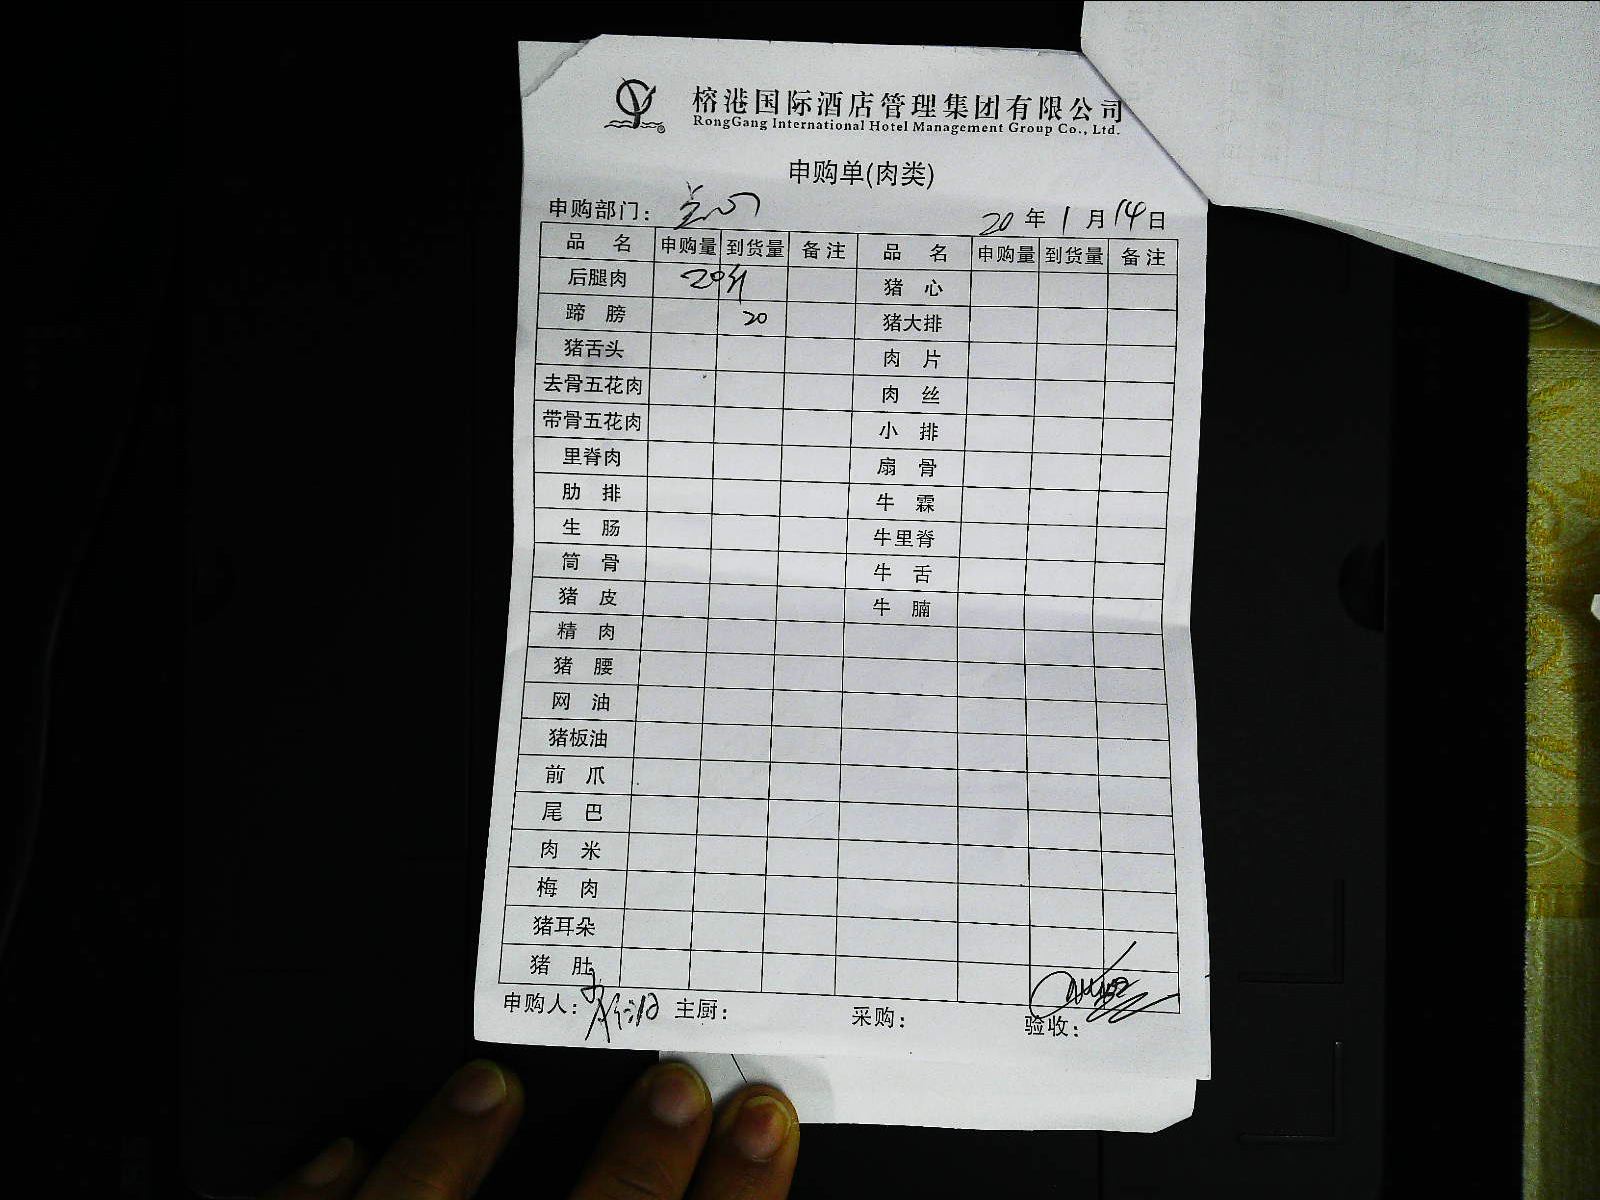 榕港国际酒店管理集团有限公司
RongGang International Hotel Management Group Co., Ltd.
申购单(肉类)
申购部门：
20 年 1 月 14 日
品 名 申购量 到货量 备注 品 名 申购量 到货量 备注
后腿肉 20斤 猪 心
蹄 膀 20 猪大排
猪舌头 肉 片
去骨五花肉 肉 丝
带骨五花肉 小 排
里脊肉 扇 骨
肋 排 牛 霖
生 肠 牛里脊
筒 骨 牛 舌
猪 皮 牛 腩
精 肉
猪 腰
网 油
猪板油
前 爪
尾 巴
肉 米
梅 肉
猪耳朵
猪 肚
申购人： 主厨： 采购： 验收：